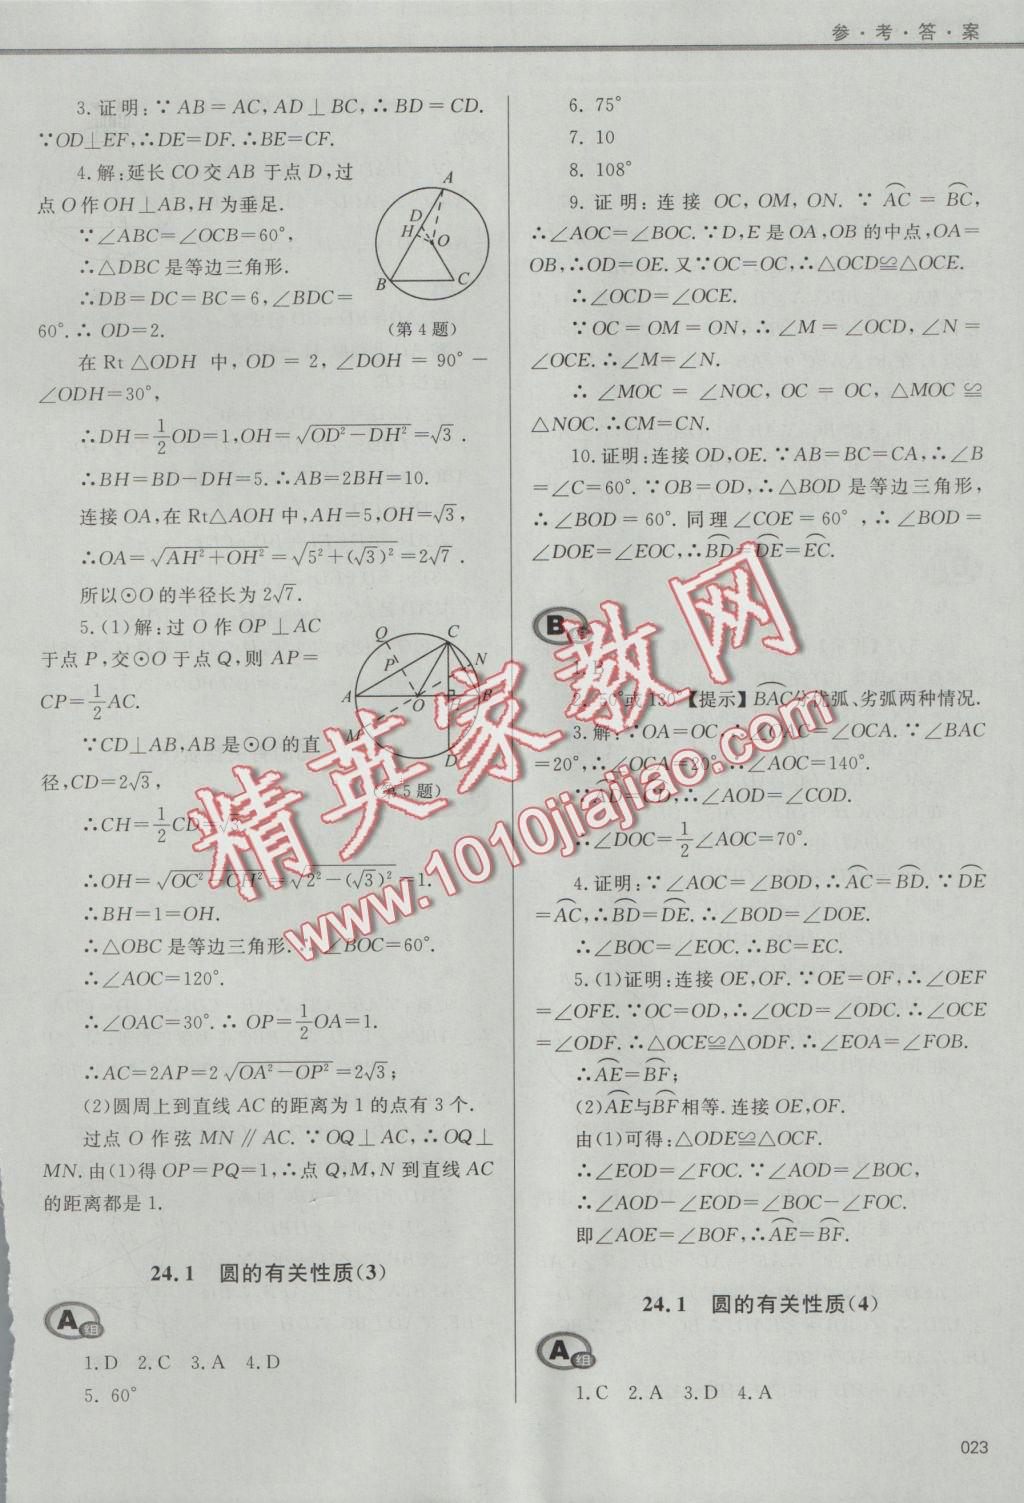 参·考·答·案
3.证明:∵AB=AC,AD⊥BC,∴BD=CD.
∵OD⊥EF,∴DE=DF.∴BE=CF.
4.解:延长CO交AB于点D,过
点O作OH⊥AB,H为垂足.
∵∠ABC=∠OCB=60°,
∴△DBC是等边三角形.
∴DB=DC=BC=6,∠BDC=
60°.∴OD=2.
A
D
H
O
B
C
(第4题)
在Rt△ODH中,OD=2,∠DOH=90°-
∠ODH=30°,
∴DH=1/2OD=1,OH=√(OD²-DH²)=√3.
∴BH=BD-DH=5.∴AB=2BH=10.
连接OA,在Rt△AOH中,AH=5,OH=√3,
∴OA=√(AH²+OH²)=√(5²+(√3)²)=2√7.
所以⊙O的半径长为2√7.
5.(1)解:过O作OP⊥AC
于点P,交⊙O于点Q,则AP=
CP=1/2AC.
∵CD⊥AB,AB是⊙O的直
径,CD=2√3,
Q
C
P
N
A
O
H
B
M
D
(第5题)
∴CH=1/2CD=√3.
∴OH=√(OC²-CH²)=√(2²-(√3)²)=1.
∴BH=1=OH.
∴△OBC是等边三角形.∴∠BOC=60°.
∴∠AOC=120°.
∴∠OAC=30°.∴OP=1/2OA=1.
∴AC=2AP=2√(OA²-OP²)=2√3;
(2)圆周上到直线AC的距离为1的点有3个.
过点O作弦MN∥AC.∵OQ⊥AC,∴OQ⊥
MN.由(1)得OP=PQ=1,∴点Q,M,N到直线AC
的距离都是1.
24.1 圆的有关性质(3)
A组
1.D 2.C 3.A 4.D
5. 60°
6. 75°
7. 10
8. 108°
9.证明:连接OC,OM,ON.∵⌒AC=⌒BC,
∴∠AOC=∠BOC.∵D,E是OA,OB的中点,OA=
OB,∴OD=OE.又∵OC=OC,∴△OCD≌△OCE.
∴∠OCD=∠OCE.
∵OC=OM=ON,∴∠M=∠OCD,∠N=
∠OCE.∴∠M=∠N.
∴∠MOC=∠NOC,OC=OC,△MOC≌
△NOC.∴CM=CN.
10.证明:连接OD,OE.∵AB=BC=CA,∴∠B
=∠C=60°.∵OB=OD,∴△BOD是等边三角形,
∴∠BOD=60°.同理∠COE=60°,∴∠BOD=
∠DOE=∠EOC,∴⌒BD=⌒DE=⌒EC.
B
1.B
2.50°或130°【提示】⌒BAC分优弧、劣弧两种情况.
3.解:∵OA=OC,∴∠OAC=∠OCA.∵∠BAC
=20°,∴∠OCA=20°.∴∠AOC=140°.
∵⌒AD=⌒CD,∴∠AOD=∠COD.
∴∠DOC=1/2∠AOC=70°.
4.证明:∵∠AOC=∠BOD,∴⌒AC=⌒BD.∵⌒DE
=⌒AC,∴⌒BD=⌒DE.∴∠BOD=∠DOE.
∴∠BOC=∠EOC.∴BC=EC.
5.(1)证明:连接OE,OF.∵OE=OF,∴∠OEF
=∠OFE.∵OC=OD,∴∠OCD=∠ODC.∴∠OCE
=∠ODF.∴△OCE≌△ODF.∴∠EOA=∠FOB.
∴⌒AE=⌒BF;
(2)⌒AE与⌒BF相等.连接OE,OF.
由(1)可得:△ODE≌△OCF.
∴∠EOD=∠FOC.∵∠AOD=∠BOC,
∴∠AOD-∠EOD=∠BOC-∠FOC.
即∠AOE=∠BOF,∴⌒AE=⌒BF.
24.1 圆的有关性质(4)
A组
1.C 2.A 3.D 4.A
023
精英家教网
www.1010jiajiao.com